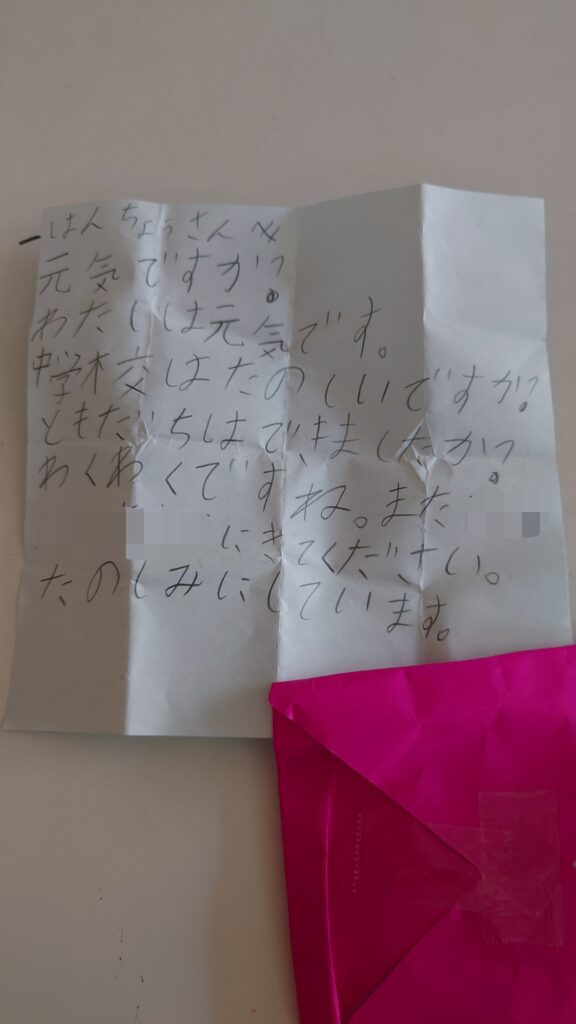 はんちょうさんへ
元気ですか?
わたしは元気です。
中学校はたのしいですか?
ともだちはできましたか?
わくわくですね。また
にきてください。
たのしみにしています。